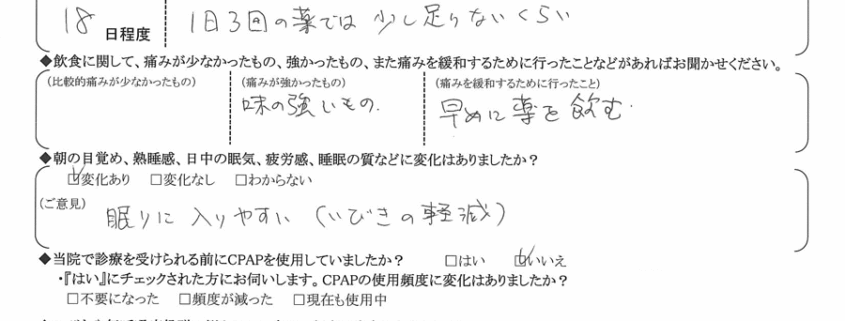 18 日程度 1日3回の薬では少し足りないくらい
◆飲食に関して、痛みが少なかったもの、強かったもの、また痛みを緩和するために行ったことなどがあればお聞かせください。
(比較的痛みが少なかったもの) (痛みが強かったもの) (痛みを緩和するために行ったこと)
味の強いもの. 早めに薬を飲む.
◆朝の目覚め、熟睡感、日中の眠気、疲労感、睡眠の質などに変化はありましたか?
☑変化あり □変化なし □わからない
(ご意見) 眠りに入りやすい(いびきの軽減)
◆当院で診療を受けられる前にCPAPを使用していましたか? □はい ☑いいえ
・『はい』にチェックされた方にお伺いします。CPAPの使用頻度に変化はありましたか?
□不要になった □頻度が減った □現在も使用中